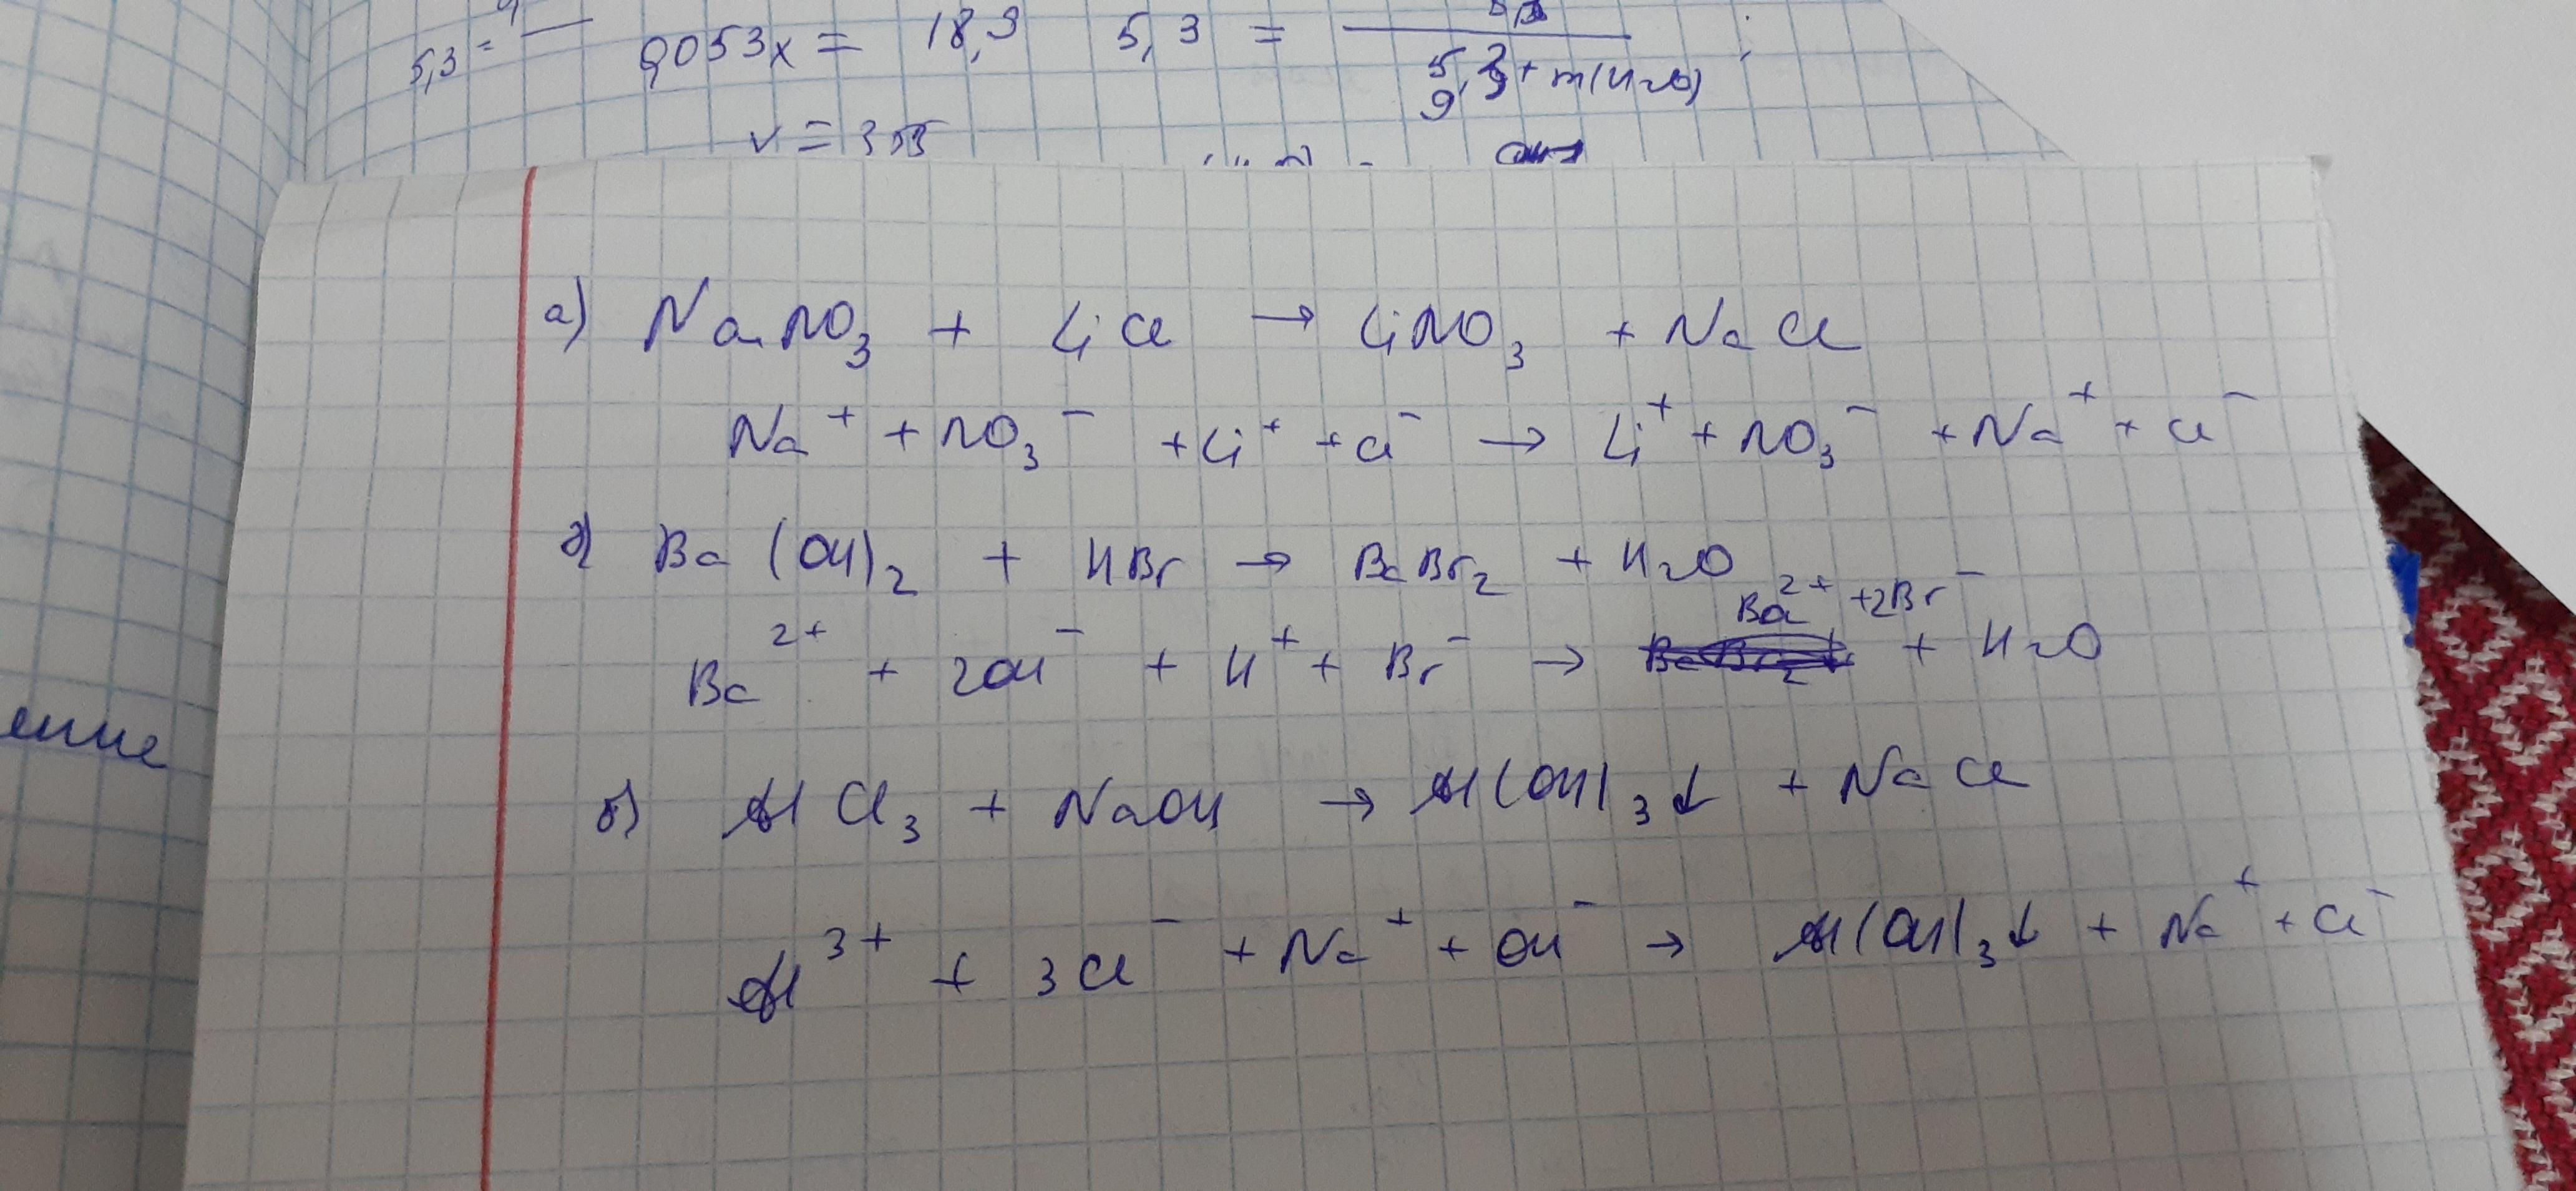 5,3 =
0,053x = 18,9 5,3 =
+ m(H2O)
а) NaNO3 + LiCl → LiNO3 + NaCl
Na+ + NO3- + Li+ + Cl- → Li+ + NO3- + Na+ + Cl-
Ba(OH)2 + HBr → BaBr2 + H2O
Ba2+ + 2Br-
Ba2+ + 2OH- + H+ + Br- → + H2O
AlCl3 + NaOH → Al(OH)3↓ + NaCl
Al3+ + 3Cl- + Na+ + OH- → Al(OH)3↓ + Na+ + Cl-
ение